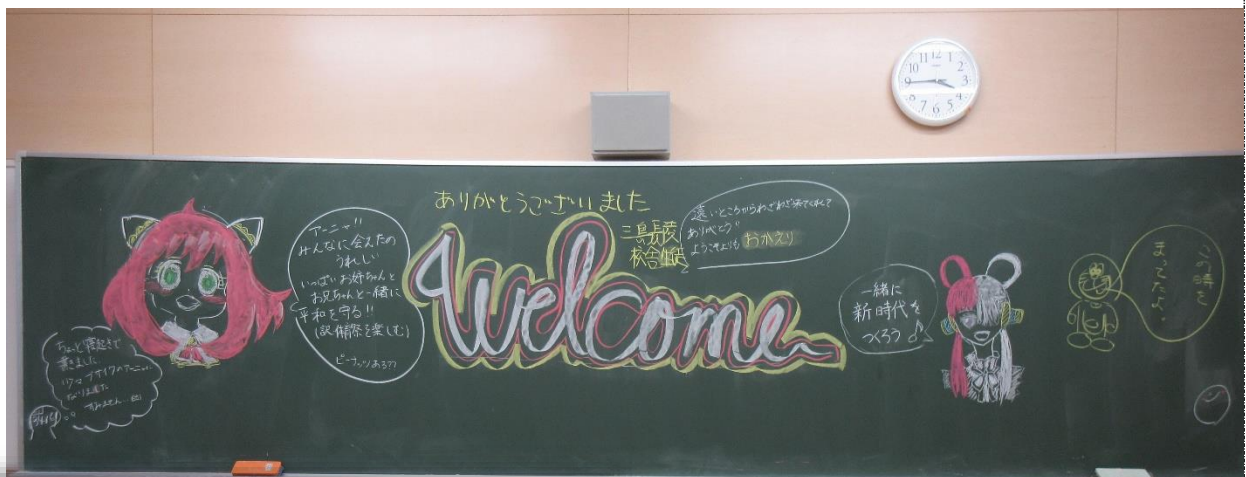 ありがとうございました
三島長陵
校舎生徒
遠いところからわざわざ来てくれて
ありがとう
ようこそよりも おかえり
welcome
アーニャ
みんなに会えたの
うれしい
いっぱいお姉ちゃんと
お兄ちゃんと一緒に
平和を守る!!
ピーナッツある??
ちょっと寝起きで
書きました。
すみません
一緒に
新時代を
つくろう
この時を
まってたよ。
12
1
2
3
4
5
6
7
8
9
10
11